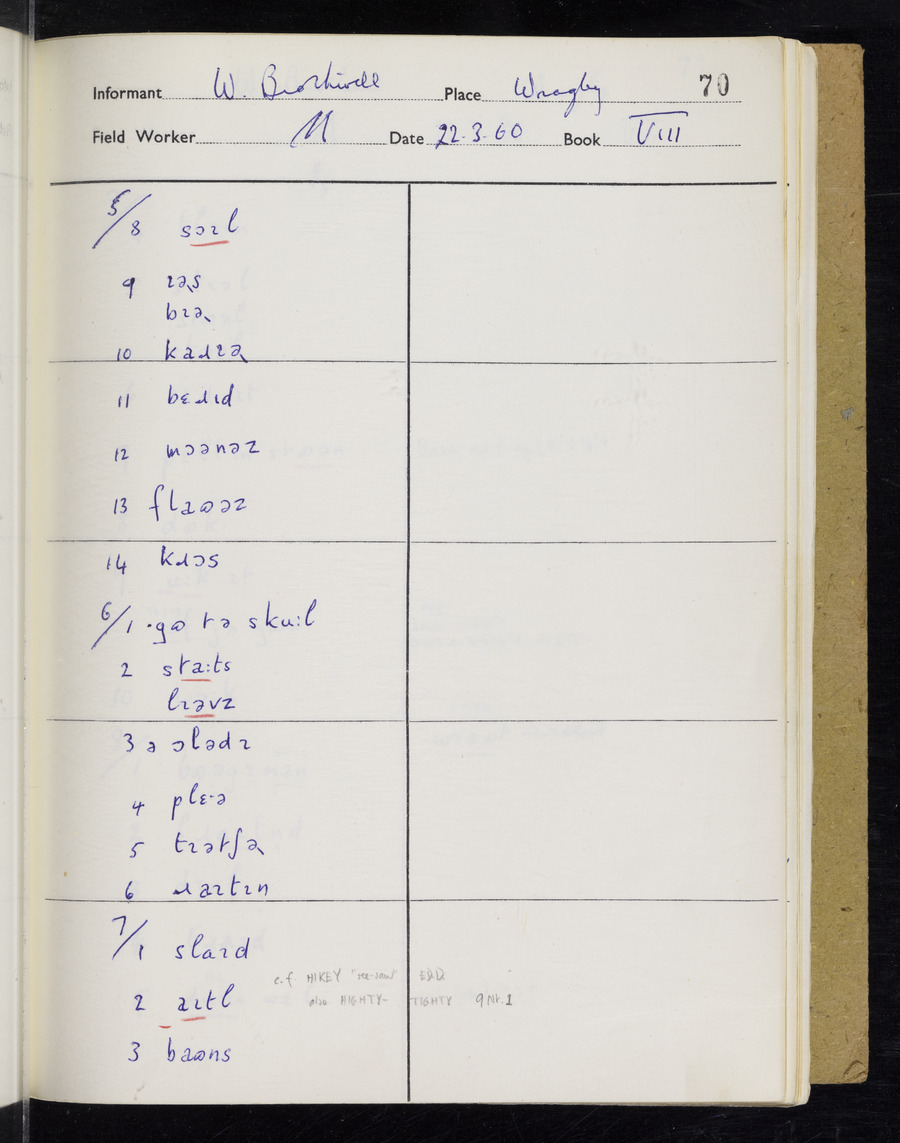 Informant W. Brothwell Place Wragby 70
Field Worker M Date 22.3.60 Book VIII
5/8 sɔɪl
9 ɪə˞s
bɪə˞
10 kaɹɪə˞
11 bɛɹɪd
12 mɔənəz
13 flaʊəz
14 kɹɔs
6/1 ·gʊ tə skuːl
2 staːts
lɪəvz
3 ə ɔlədɪ
4 plɛ·ə
5 tɪətʃə˞
6 ɹaɪtɪn
7/1 slaɪd
c.f. HIKEY "see-saw" EDD
2 aɪtl
also HIGHTY-TIGHTY 9Nt.1
3 baʊns